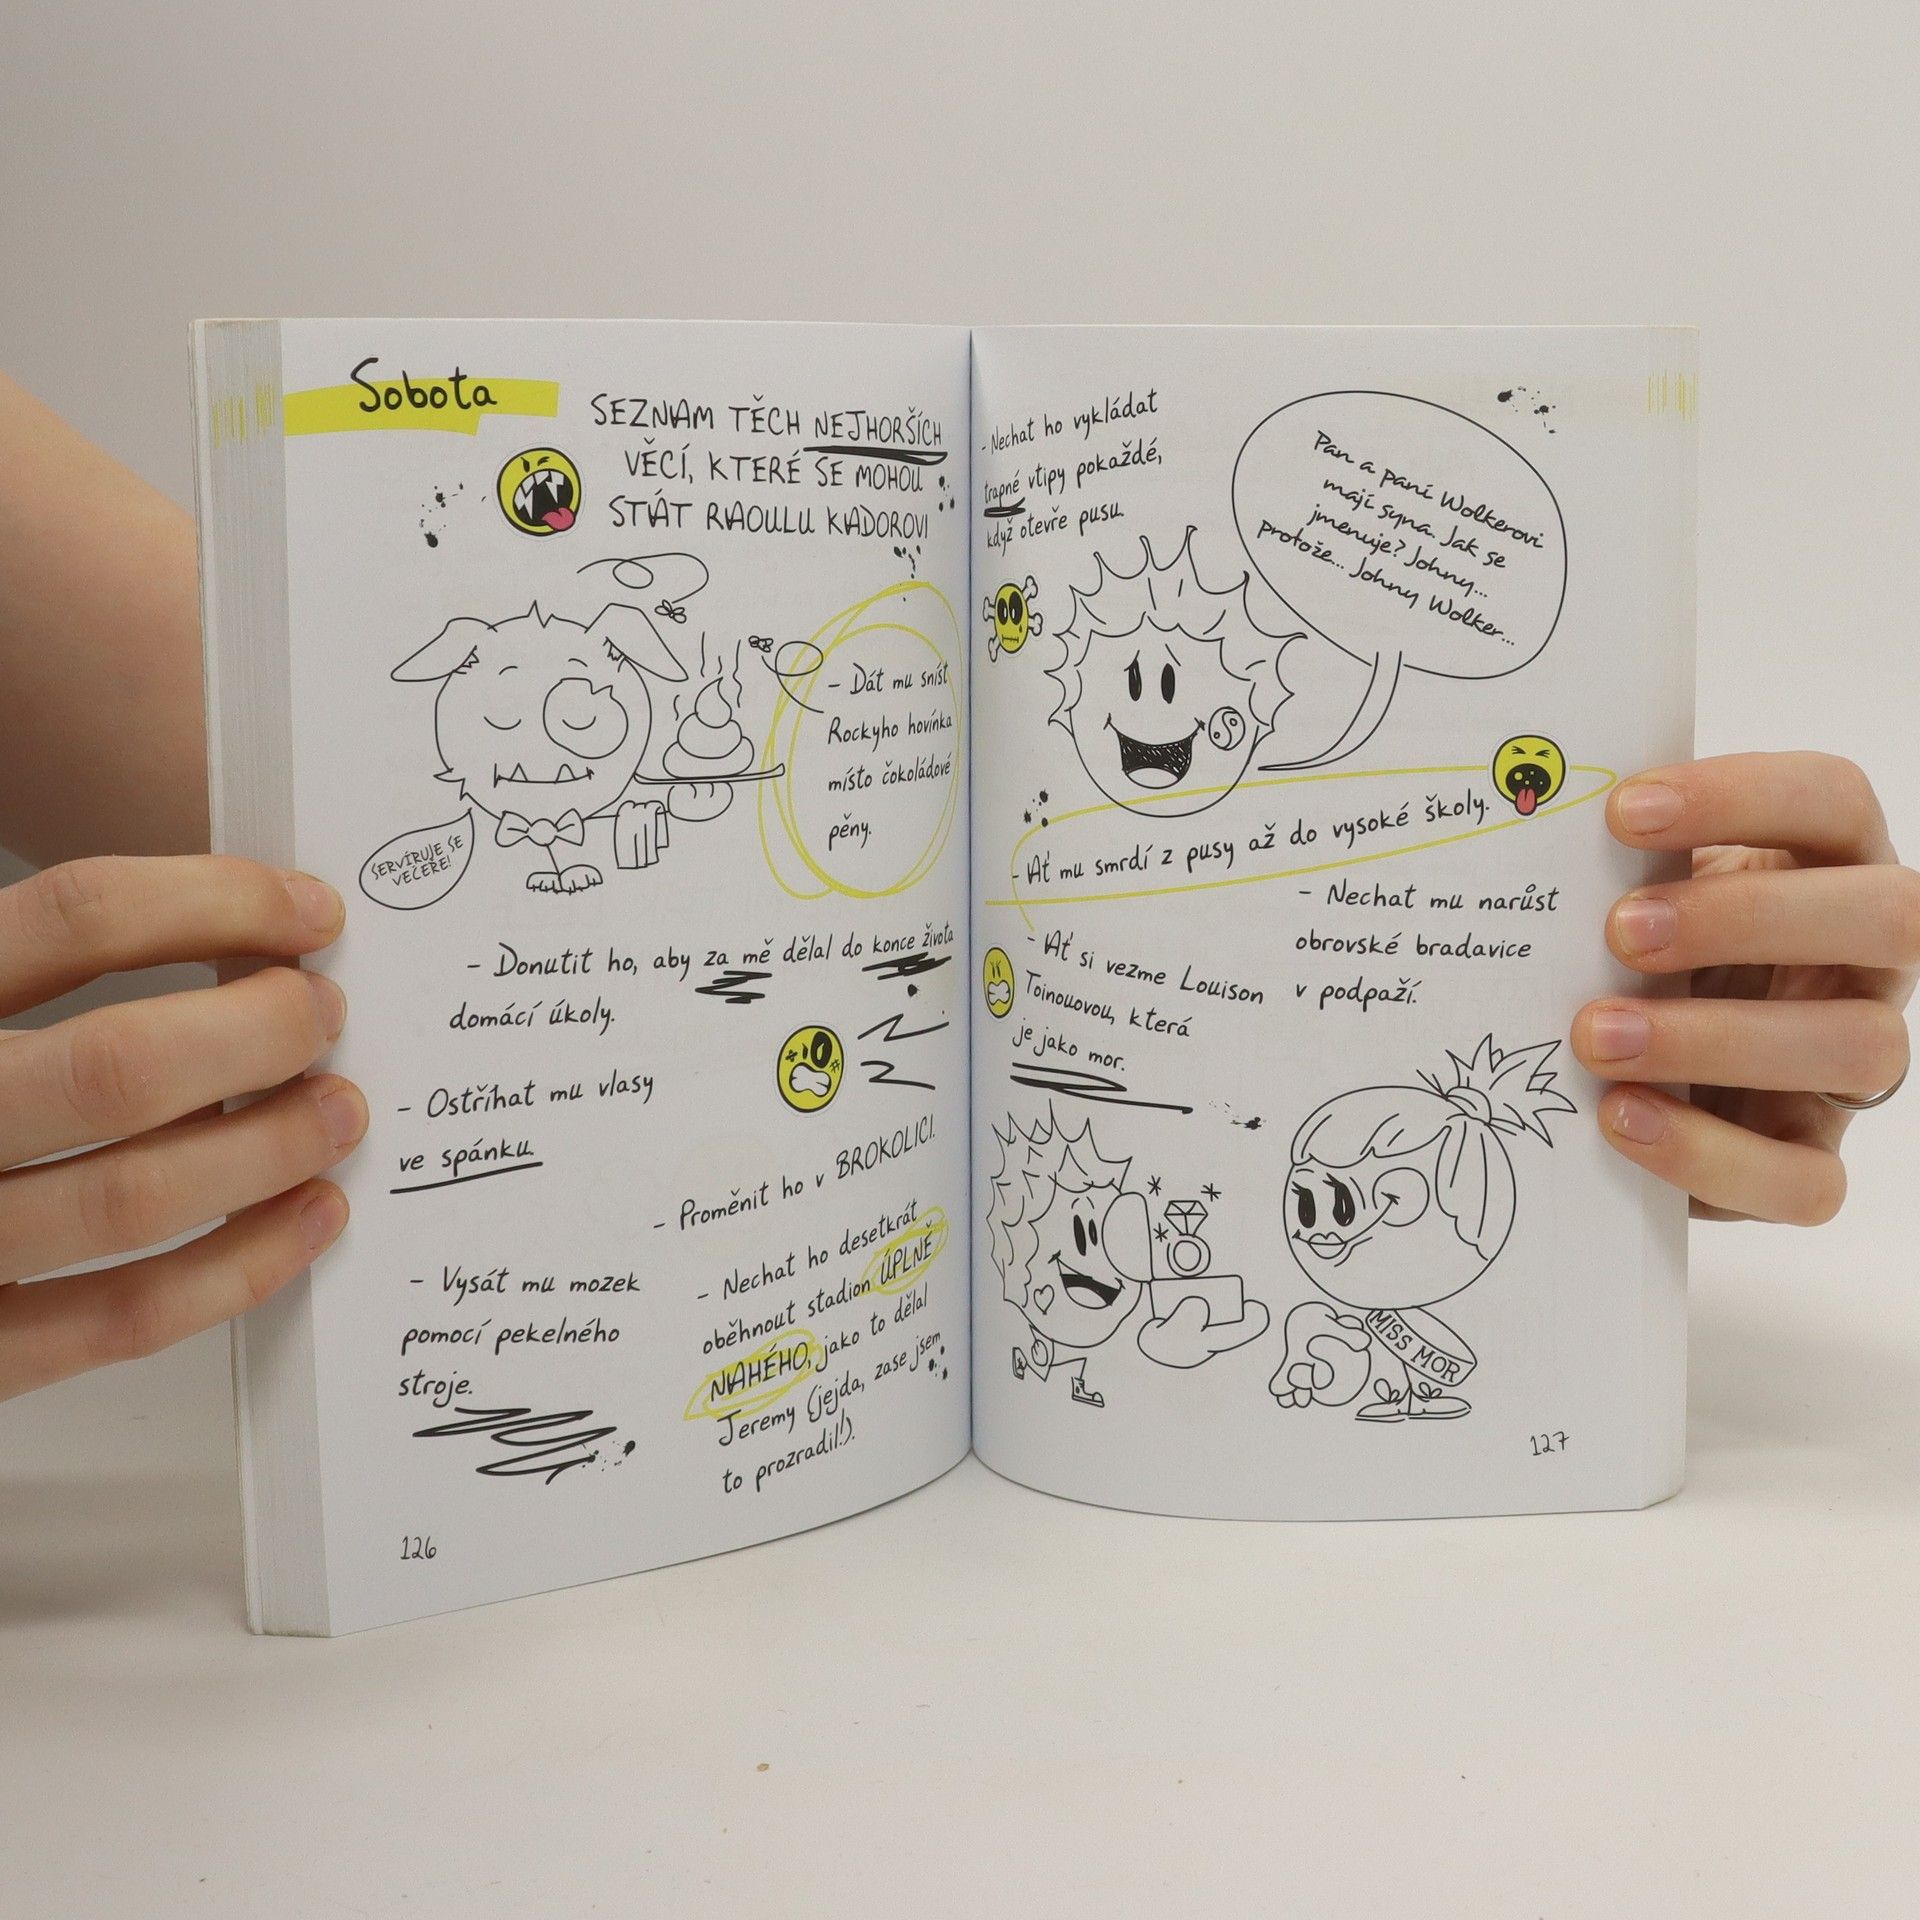 Sobota
SEZNAM TĚCH NEJHORŠÍCH
VĚCÍ, KTERÉ SE MOHOU
STÁT RAOULU KADOROVI
- Dát mu sníst
Rockyho hovínka
místo čokoládové
pěny.
SERVÍRUJE SE
VEČEŘE!
- Donutit ho, aby za mě dělal do konce života
domácí úkoly.
- Ostříhat mu vlasy
ve spánku.
- Proměnit ho v BROKOLICI.
- Vysát mu mozek
pomocí pekelného
stroje.
- Nechat ho desetkrát
oběhnout stadion ÚPLNĚ
NAHÉHO, jako to dělal
Jeremy (jejda, zase jsem
to prozradil!).
126
- Nechat ho vykládat
trapné vtipy pokaždé,
když otevře pusu.
Pan a paní Wolkerovi
mají syna. Jak se
jmenuje? Johny...
protože... Johny Wolker...
- Ať mu smrdí z pusy až do vysoké školy.
- Nechat mu narůst
obrovské bradavice
v podpaží.
- Ať si vezme Louison
Toinouovou, která
je jako mor.
MISS MOR
127